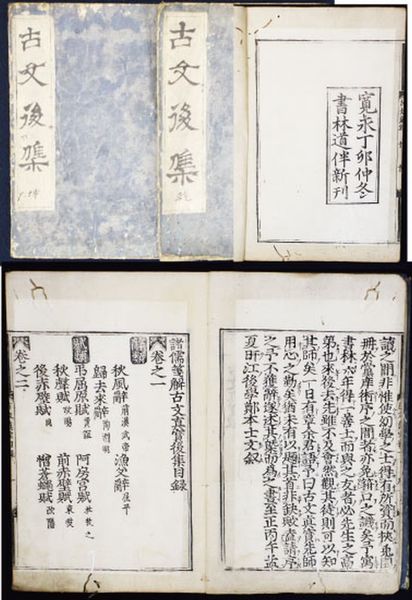 古文後集
古文後集
寛永丁卯仲冬
書林道伴新刊
讀之明非惟使幼學之士得有所資而挾兎園
冊於黨庠術序之間者亦免口之譏矣予寓
書林六年得一善士而與之友者必先生之高
弟也來後去先雖不及會然觀其徒則可以知
其師矣一日有章余君語予曰古文真寶先師
用心之勤矣猶未有以題其首非缺歟盍請序
之予不獲辭遂述其槩而為之書至正丙午孟
夏旴江後學鄭本士文叙
諸儒箋解古文真寳後集目録
卷之一
秋風辭 前漢武帝 漁父辭 屈平
歸去來辭 陶淵明
弔屈原賦 賈誼 阿房宮賦 杜牧之
秋聲賦 歐陽 前赤壁賦 東坡
後赤壁賦 同 憎蒼蠅賦 歐陽
卷之二